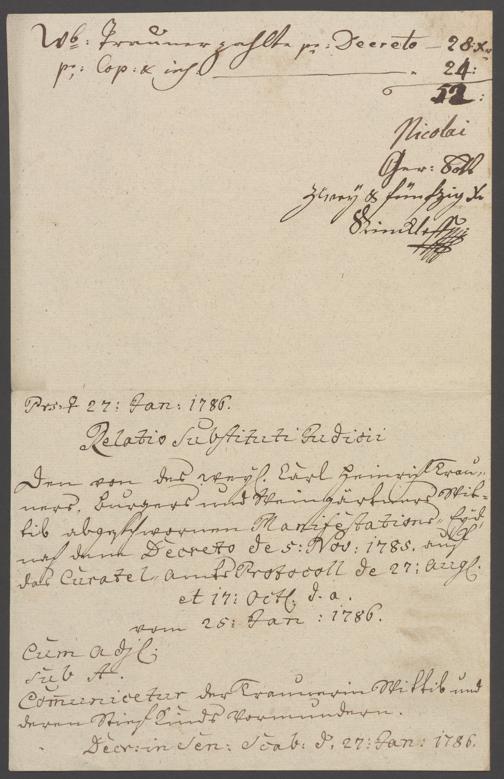 Wb: Trauner zahlte pr: Decreto — 28 xr
pr: Cop: & isch — 24:
52:
Nicolai
Ger: Bott
zwey & fünfzig xr
Prs: d 27: Jan: 1786.
Relatio Substituti Judicii
Den von des weyl. Carl Heinrich Trau-
ners, Burgers und Weingärtners Wit-
tib abgeschwornen Manifestations-Eyd,
nach dem Decreto de 5: Nov: 1785. auf
das Curatel-Amts Protocoll de 27: Augl.
et 17: Octl. d. a.
vom 25: Jan: 1786.
Cum adjl:
sub A.
Communicetur der Traunerin Wittib und
deren Stief Kinds Vormundern.
Decr: in Sen: Scab: d. 27: Jan: 1786.